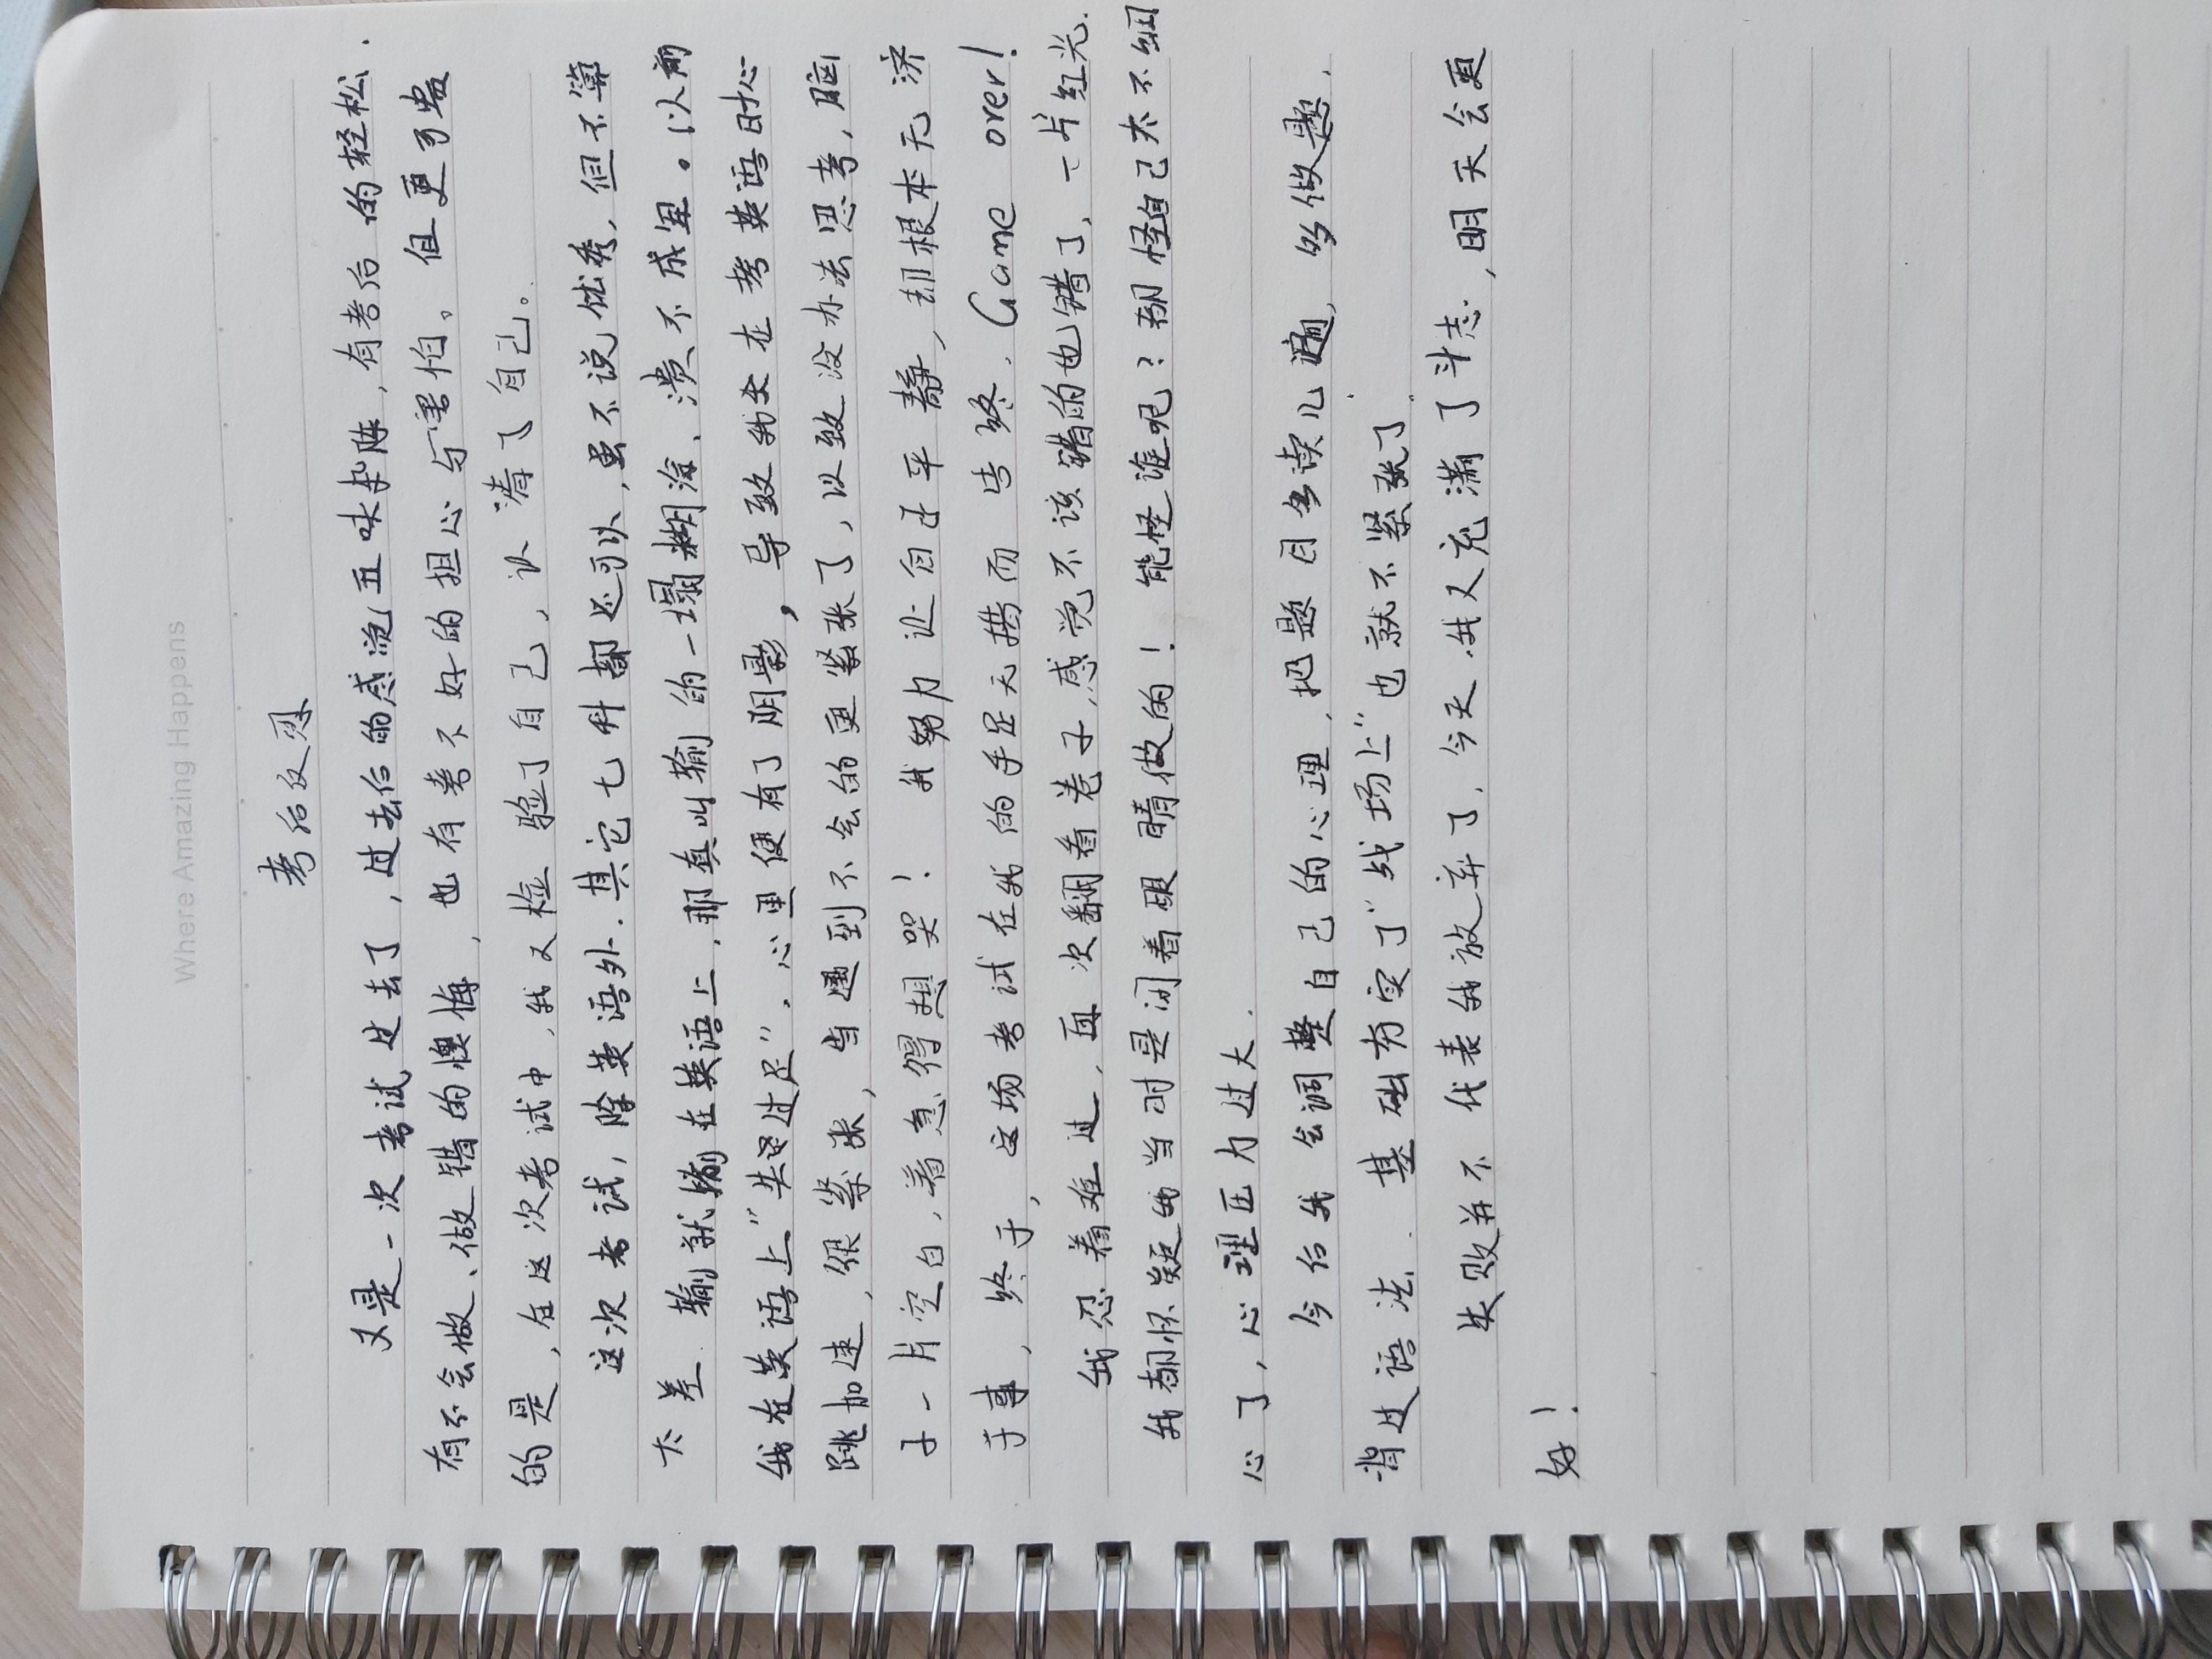 Where Amazing Happens
考后反思
又是一次考试过去了，过去后的感觉五味杂陈，有考后的轻松.
有不会做、做错的懊悔，也有考不好的担心与害怕。但更可贵
的是，在这次考试中，我又检验了自己，认清了自己。
这次考试，除英语外.其它七科都还可以，虽不说优秀，但不算
太差.输就输在英语上，那真叫输的一塌糊涂、溃不成军。以前
我在英语上"失过足"，心里便有了阴影，导致我处在考英语时心
跳加速，很紧张，当遇到不会的更紧张了，以致没办法思考，脑
子一片空白，着急得想哭！我努力让自己平静，却根本无济
于事，终于，这场考试在我的手足无措而告终.Game over!
我忍着难过，再次翻看卷子,感觉不该错的也错了，一片红光.
我都怀疑我当时是闭着眼睛做的！能怪谁呢？都怪自己太不细
心了，心理压力过大.
今后我会调整自己的心理，把题目多读几遍，多做题，
背过语法.基础夯实了"战场上"也就不紧张了
失败并不代表我放弃了，今天,我又充满了斗志，明天会更
好！